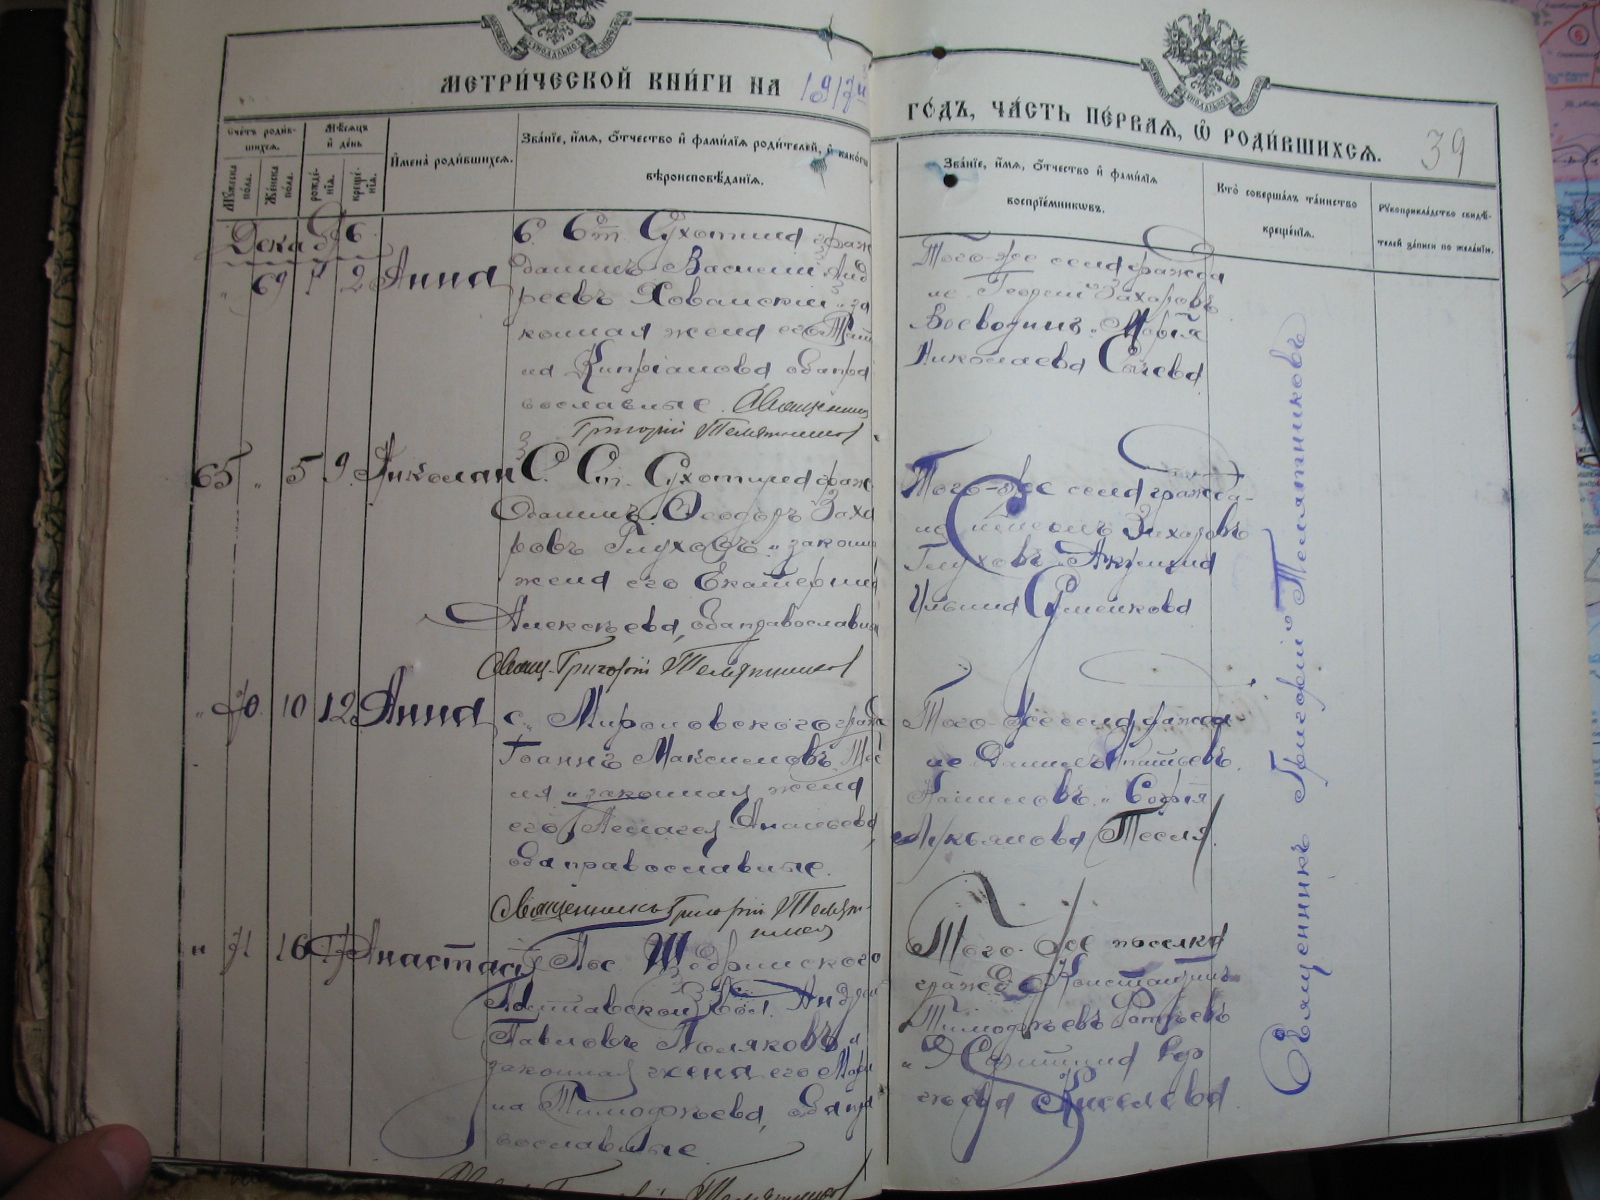 МЕТРИ́ЧЕСКОЙ КНИ́ГИ НА 1917й
ГО́ДЪ, ЧА́СТЬ ПЕ́РВАЯ, Ѡ҆ РОДИ́ВШИХСЯ.
39
Счётъ роди́вшихся.
Му́жеска по́ла.
Же́нска по́ла.
Мѣ́сяцъ и де́нь
рожде́нія.
креще́нія.
Имена̀ роди́вшихся.
Зва́нїе, и҆́мя, ѻ҆́тчество и҆ фами́лїя роди́телей, и҆ како́гѡ
вѣроисповѣ́данїя.
Зва́нїе, и҆́мя, ѻ҆́тчество и҆ фами́лїя
воспрїе́мникѡвъ.
Кто̀ соверша́лъ та́инство
креще́нїя.
Рукоприкла́дство свидѣ́-
телей за́писи по жела́нїю.
Декабрь
69 1 2 Анна
С. Ст. Сухотина граж
данинъ Василий Анд
реевъ Хованский и за
конная жена его Тать
на Кипріанова оба пра
вославные. Священник
Григорій Телятников
Того-же села гражда
не Георгий Захаровъ
Воеводинъ и Марія
Николаева Сычева
65 " 5 9 Николай
С. Ст. Сухотина граж
данинъ Ѳеодоръ Заха
ровъ Глуховъ и законн
жена его Екатерина
Алексѣева, оба православны
Свящ. Григорій Телятников
Того-же села гражда-
не Симеонъ Захаровъ
Глуховъ Акулина
Ильина
" 70 10 12 Анна
с. Мироновского гражд
Іоаннъ Максимовъ Тес
ля и законная жена
его Пелагея Ананьева
оба православные.
Священникъ Григорій Телят-
ников
Того же села гражда
не Даниилъ Игнатьевъ
Даниловъ и Софія
Лукьянова Тесля
" 71 16 17 Анастасія
Пос. Щедринского
Вол. Андрей
Павловъ Поляковъ и
законная жена его Мари
на Тимофѣева, оба пра
вославные
Того-же поселка
гражд. Константинъ
Тимофѣевъ
Киселева
Священникъ Григорій Телятниковъ
Григорій Телятников